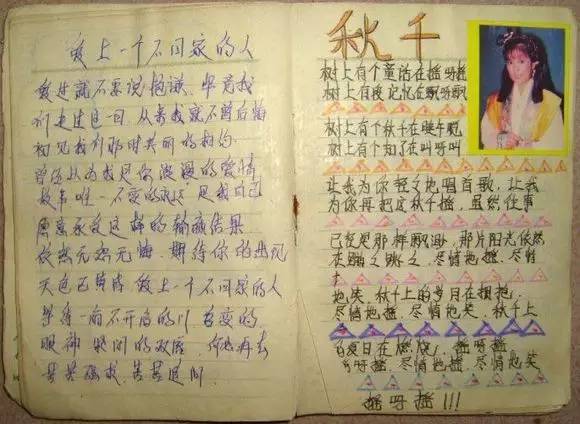 爱上一个不回家的人
爱过就不要说抱歉 毕竟我
们走过这一回 从来我就不曾后悔
初见我们那时共同的相约
曾经以为我是你浪漫的爱情
故事唯一不变的永远 是我自己
愿意承受这样的输赢结果
依然无怨无悔 期待你的出现
天色已黄昏 爱上一个不回家的人
等待一扇不开启的门 善变的
眼神 紧闭的双唇 何必再去
苦苦强求 苦苦追问
秋千
树上有个童话在摇呀摇
树上有段记忆在飘呀飘
树上有个秋千在
树上有个知了在叫呀叫
让我为你轻轻地唱首歌，让我
为你再把这秋千摇，虽然往事
已经是那样飘渺，那片阳光依然
尽情地摇、尽情
地笑，秋千上的岁月在拥抱，
尽情地摇、尽情地笑，秋千上
夏日在燃烧，摇呀摇
尽情地摇、尽情地笑
摇呀摇!!!